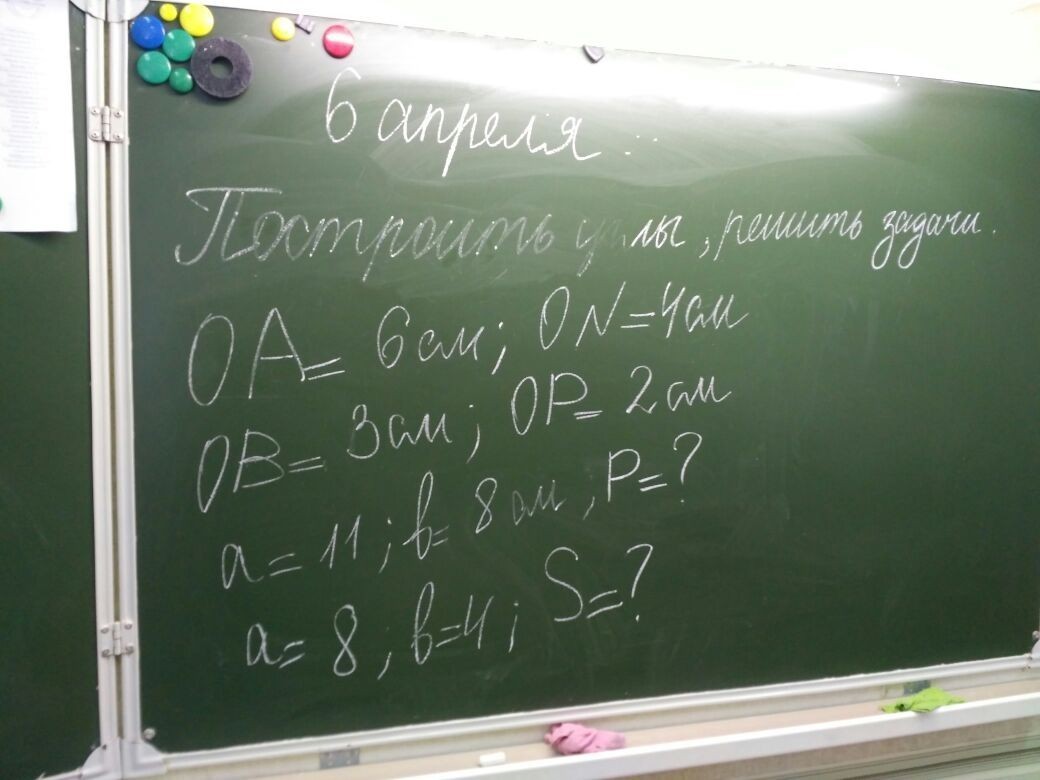 6 апреля
Построить углы, решить задачи.
OA = 6 см; ON = 4 см
OB = 3 см; OP = 2 см
a = 11; b = 8 см; P = ?
a = 8; b = 4; S = ?